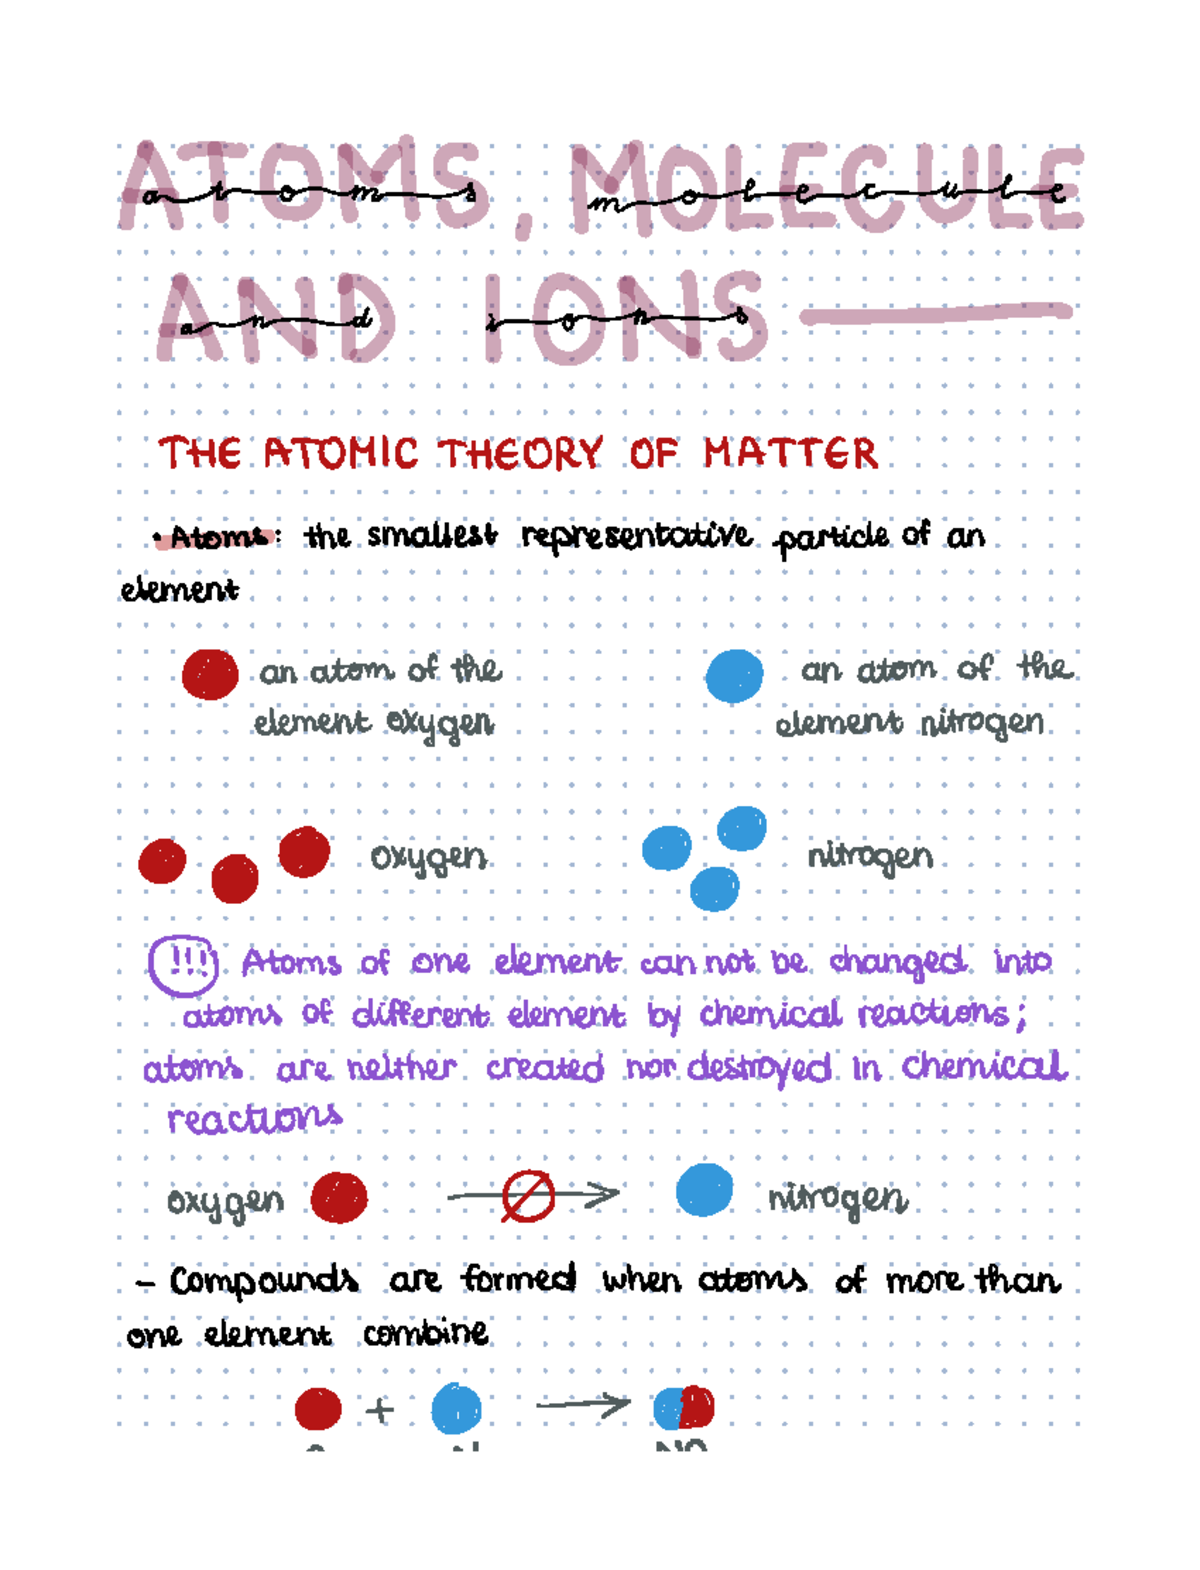 ATOMS, MOLECULE
atoms molecule
AND IONS
and ions
THE ATOMIC THEORY OF MATTER
• Atoms: the smallest representative particle of an
element
an atom of the an atom of the
element oxygen element nitrogen
oxygen nitrogen
!!! Atoms of one element can not be changed into
atoms of different element by chemical reactions;
atoms are neither created nor destroyed in chemical
reactions
oxygen → nitrogen
– Compounds are formed when atoms of more than
one element combine
+ →
NO